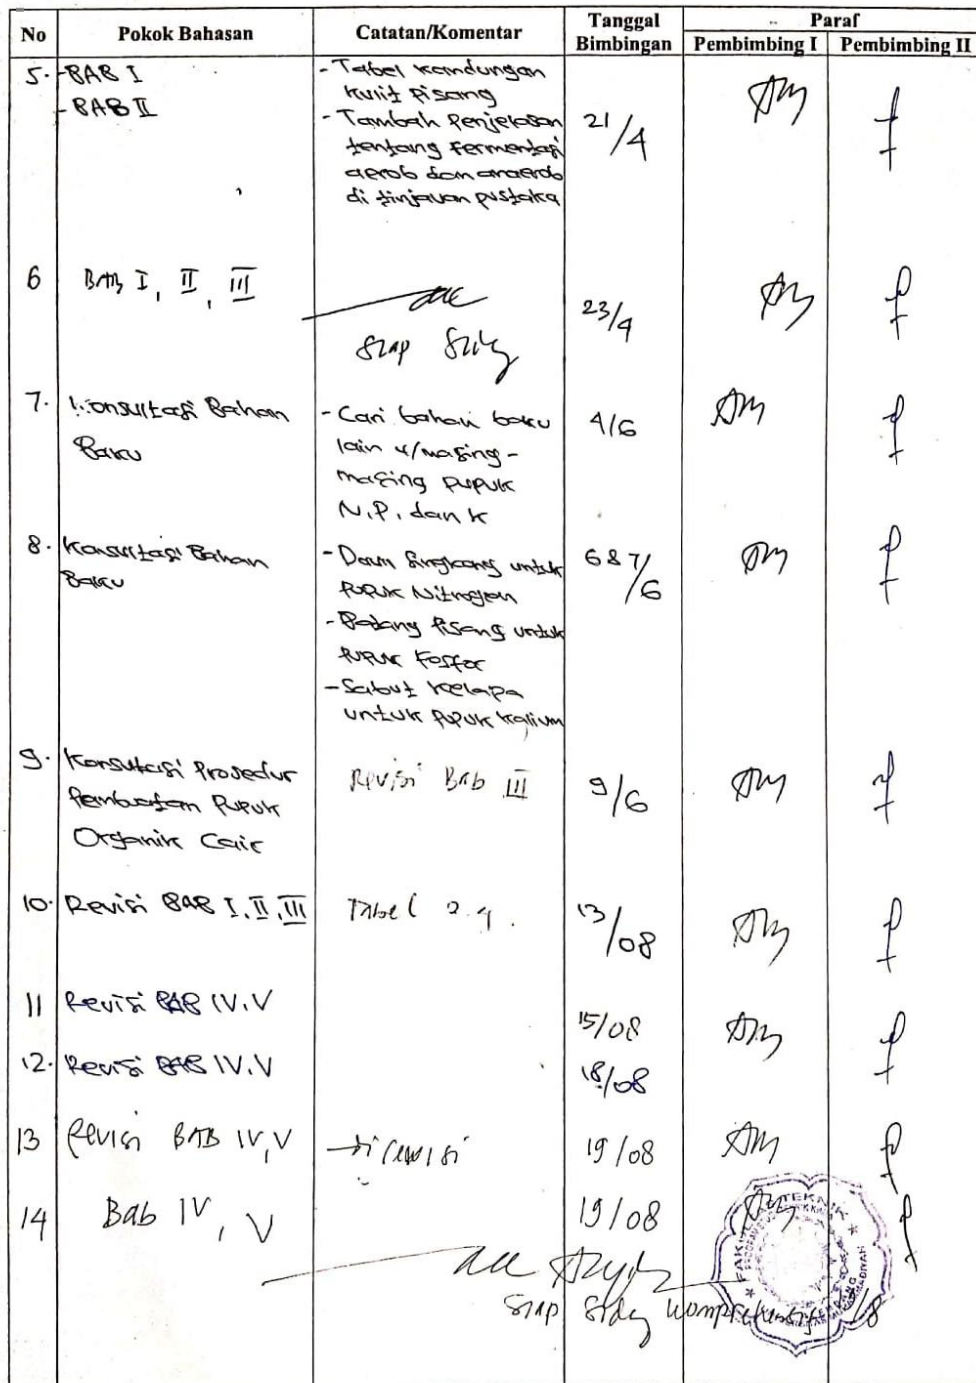 No
Pokok Bahasan
Catatan/Komentar
Tanggal
Bimbingan
Paraf
Pembimbing I
Pembimbing II
5. -BAB I
-BAB II
- Tabel kandungan
kulit pisang
- Tambah penjelasan
tentang fermentasi
aerob dan anaerob
di tinjauan pustaka
21/4
6
BAB I, II, III
acc
Siap Sidang
23/4
7. Konsultasi Bahan
Baku
- Cari bahan baku
lain u/masing-
masing pupuk
N.P. dan K
4/6
8. Konsultasi Bahan
Baku
- Daun Singkong untuk
pupuk Nitrogen
- Batang Pisang untuk
pupuk Fosfor
- Sabut kelapa
untuk pupuk kalium
6&7/6
9. Konsultasi Prosedur
Pembuatan Pupuk
Organik Cair
Revisi Bab III
9/6
10. Revisi BAB I, II, III
Tabel 2.4.
13/08
11 Revisi BAB IV, V
15/08
12. Revisi BAB IV, V
18/08
13 Revisi BAB IV, V
direvisi
19/08
14 Bab IV, V
19/08
acc
Siap Sidang Komprehensif
FAKULTAS TEKNIK